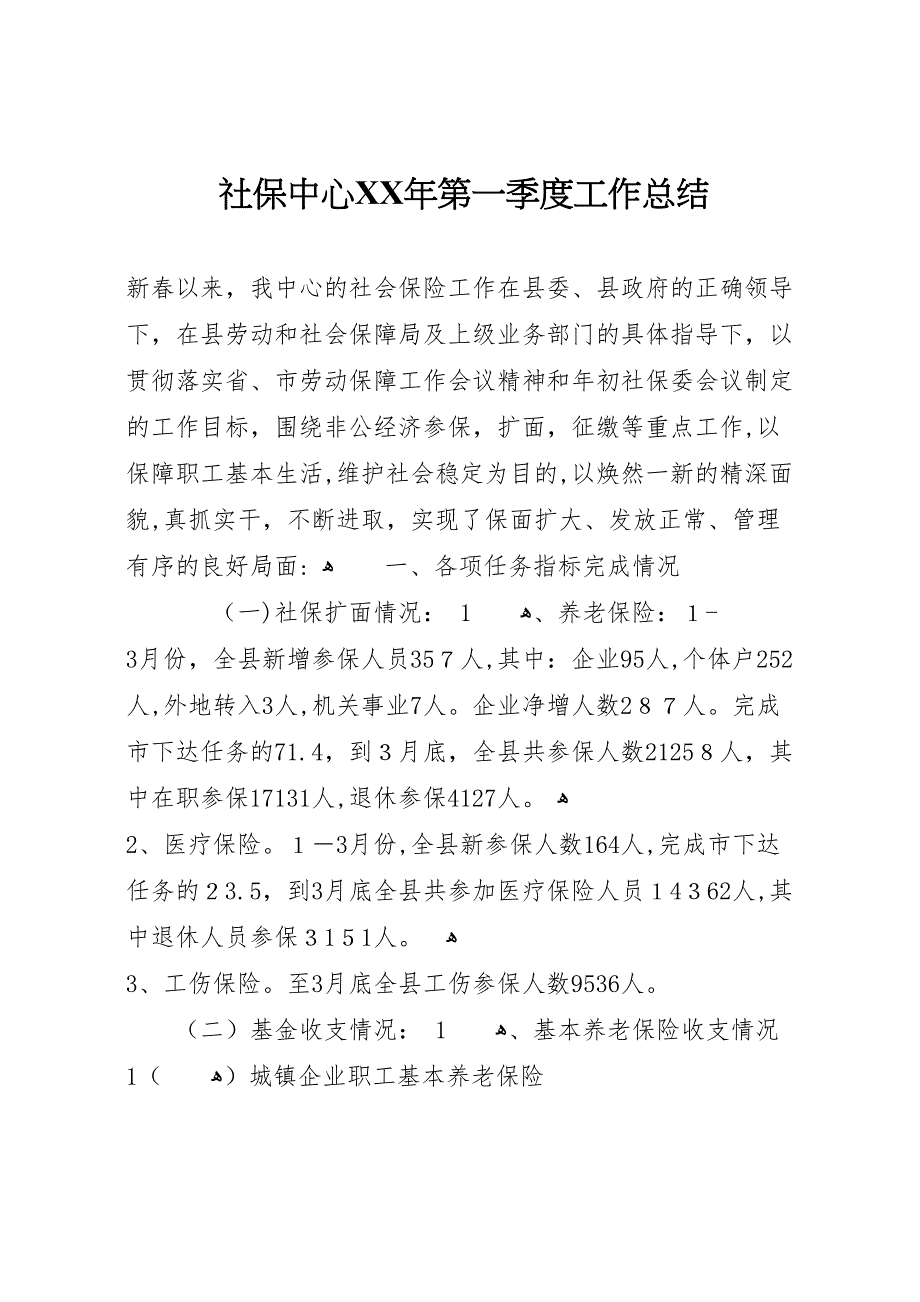 社保中心XX年第一季度工作总结
新春以来，我中心的社会保险工作在县委、县政府的正确领导
下，在县劳动和社会保障局及上级业务部门的具体指导下，以
贯彻落实省、市劳动保障工作会议精神和年初社保委会议制定
的工作目标，围绕非公经济参保，扩面，征缴等重点工作,以
保障职工基本生活,维护社会稳定为目的,以焕然一新的精深面
貌,真抓实干，不断进取，实现了保面扩大、发放正常、管理
有序的良好局面: ﻫ 一、各项任务指标完成情况
（一)社保扩面情况： 1 ﻫ、养老保险：１-
3月份，全县新增参保人员35７人,其中：企业95人,个体户252
人,外地转入3人,机关事业7人。企业净增人数2８７人。完成
市下达任务的71.4，到３月底，全县共参保人数2125８人，其
中在职参保17131人,退休参保4127人。 ﻫ
2、医疗保险。１－3月份,全县新参保人数164人,完成市下达
任务的２3.5，到3月底全县共参加医疗保险人员１4３62人,其
中退休人员参保３1５1人。 ﻫ
3、工伤保险。至3月底全县工伤参保人数9536人。
（二）基金收支情况： 1 ﻫ、基本养老保险收支情况
1（ ﻫ）城镇企业职工基本养老保险